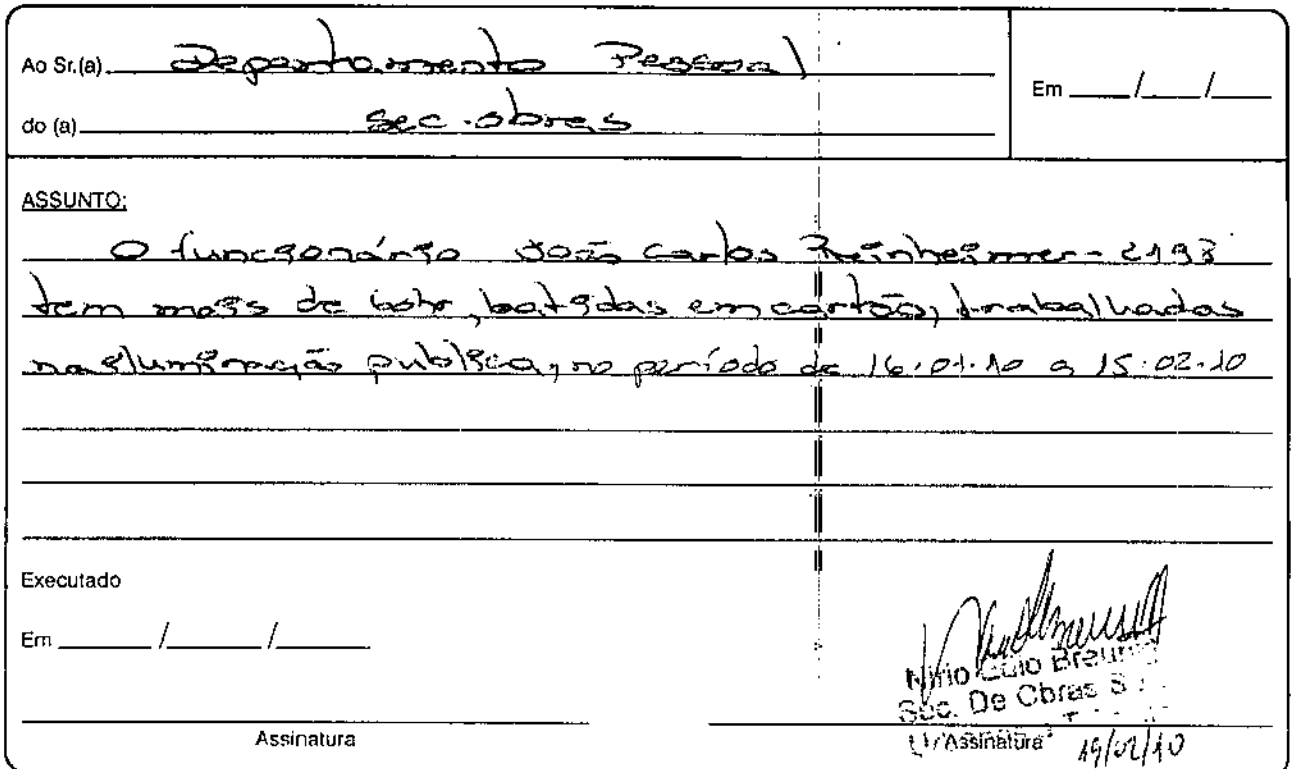 Ao Sr.(a) Departamento Pessoal
Em / /
do (a) Sec. obras
ASSUNTO:
O funcionário João Carlos Reinheimer - 2193
tem mais de 60hr, batidas em cartão, trabalhadas
na iluminação publica, no período de 16.01.10 a 15.02.10
Executado
Em / /
Sec. De Obras
Assinatura
Assinatura
19/02/10